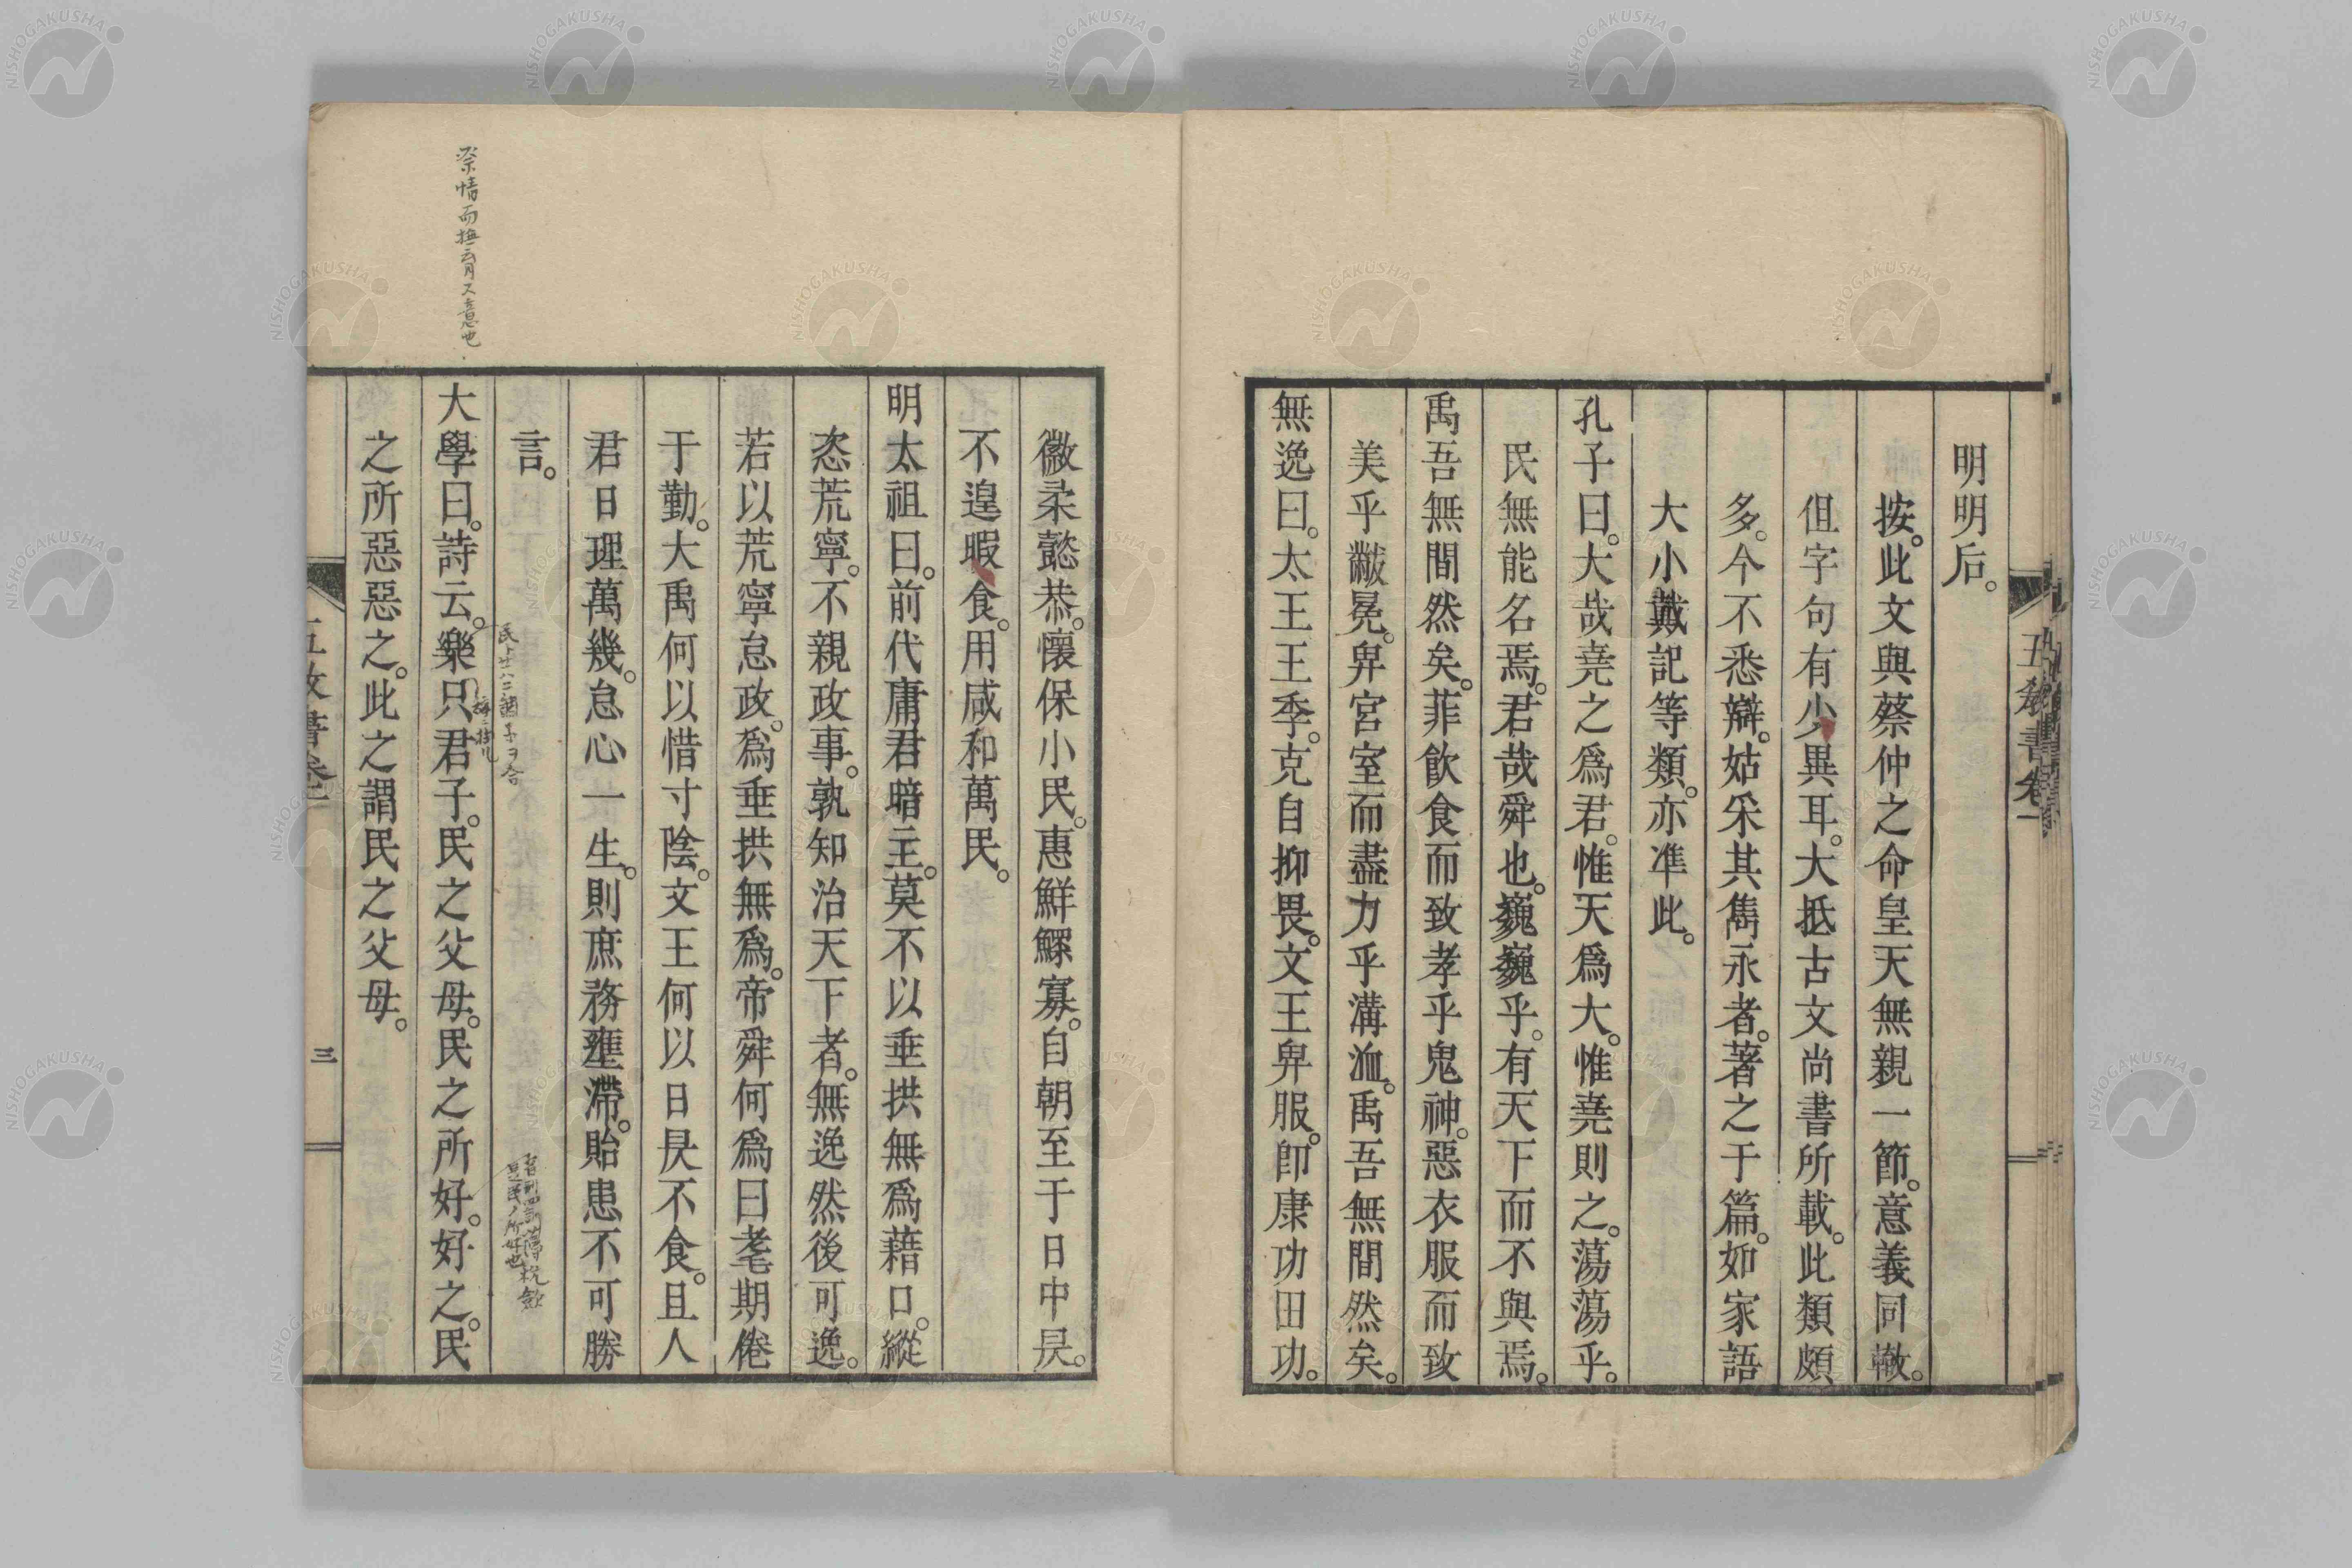 明明后。
按。此文與蔡仲之命皇天無親一節。意義同轍。
但字句有少異耳。大抵古文尚書所載。此類頗
多。今不悉辯。姑采其雋永者。著之于篇。如家語
大小戴記等類。亦準此。
孔子曰。大哉堯之爲君。惟天爲大。惟堯則之。蕩蕩乎。
民無能名焉。君哉舜也。巍巍乎。有天下而不與焉。
禹吾無間然矣。菲飮食而致孝乎鬼神。惡衣服而致
美乎黻冕。卑宮室而盡力乎溝洫。禹吾無間然矣。
無逸曰。太王王季。克自抑畏。文王卑服。卽康功田功。
徽柔懿恭。懷保小民。惠鮮鰥寡。自朝至于日中昃。
不遑暇食。用咸和萬民。
明太祖曰。前代庸君暗主。莫不以垂拱無爲藉口。縱
恣荒寧。不親政事。孰知治天下者。無逸然後可逸。
若以荒寧怠政。爲垂拱無爲。帝舜何爲曰耄期倦
于勤。大禹何以惜寸陰。文王何以日昃不食。且人
君日理萬幾。怠心一生。則庶務壅滯。貽患不可勝
言。
大學曰。詩云。樂只君子。民之父母。民之所好。好之。民
之所惡惡之。此之謂民之父母。
三